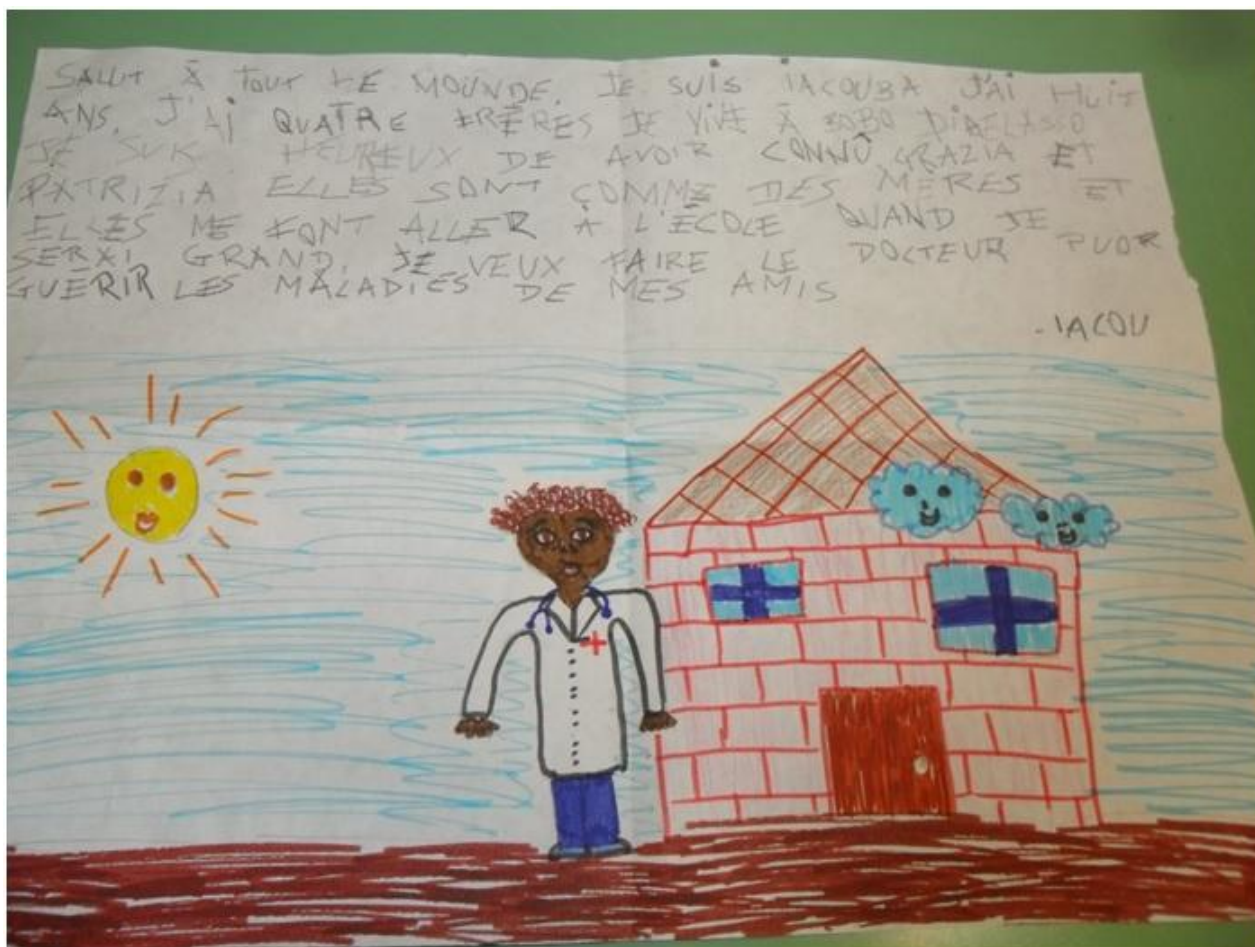 SALUT À TOUT LE MOUNDE. JE SUIS IACOUBA J'AI HUIT
ANS. J'AI QUATRE FRÈRES JE VIVE À BOBO DIAELASSO
JE SUIS HEUREUX DE AVOIR CONNÛ GRAZIA ET
PATRIZIA ELLES SONT COMME DES MÈRES ET
ELLES ME FONT ALLER A L'ÉCOLE QUAND JE
SERAI GRAND, JE VEUX FAIRE LE DOCTEUR PUOR
GUÉRIR LES MALADIES DE MES AMIS
-IACOU